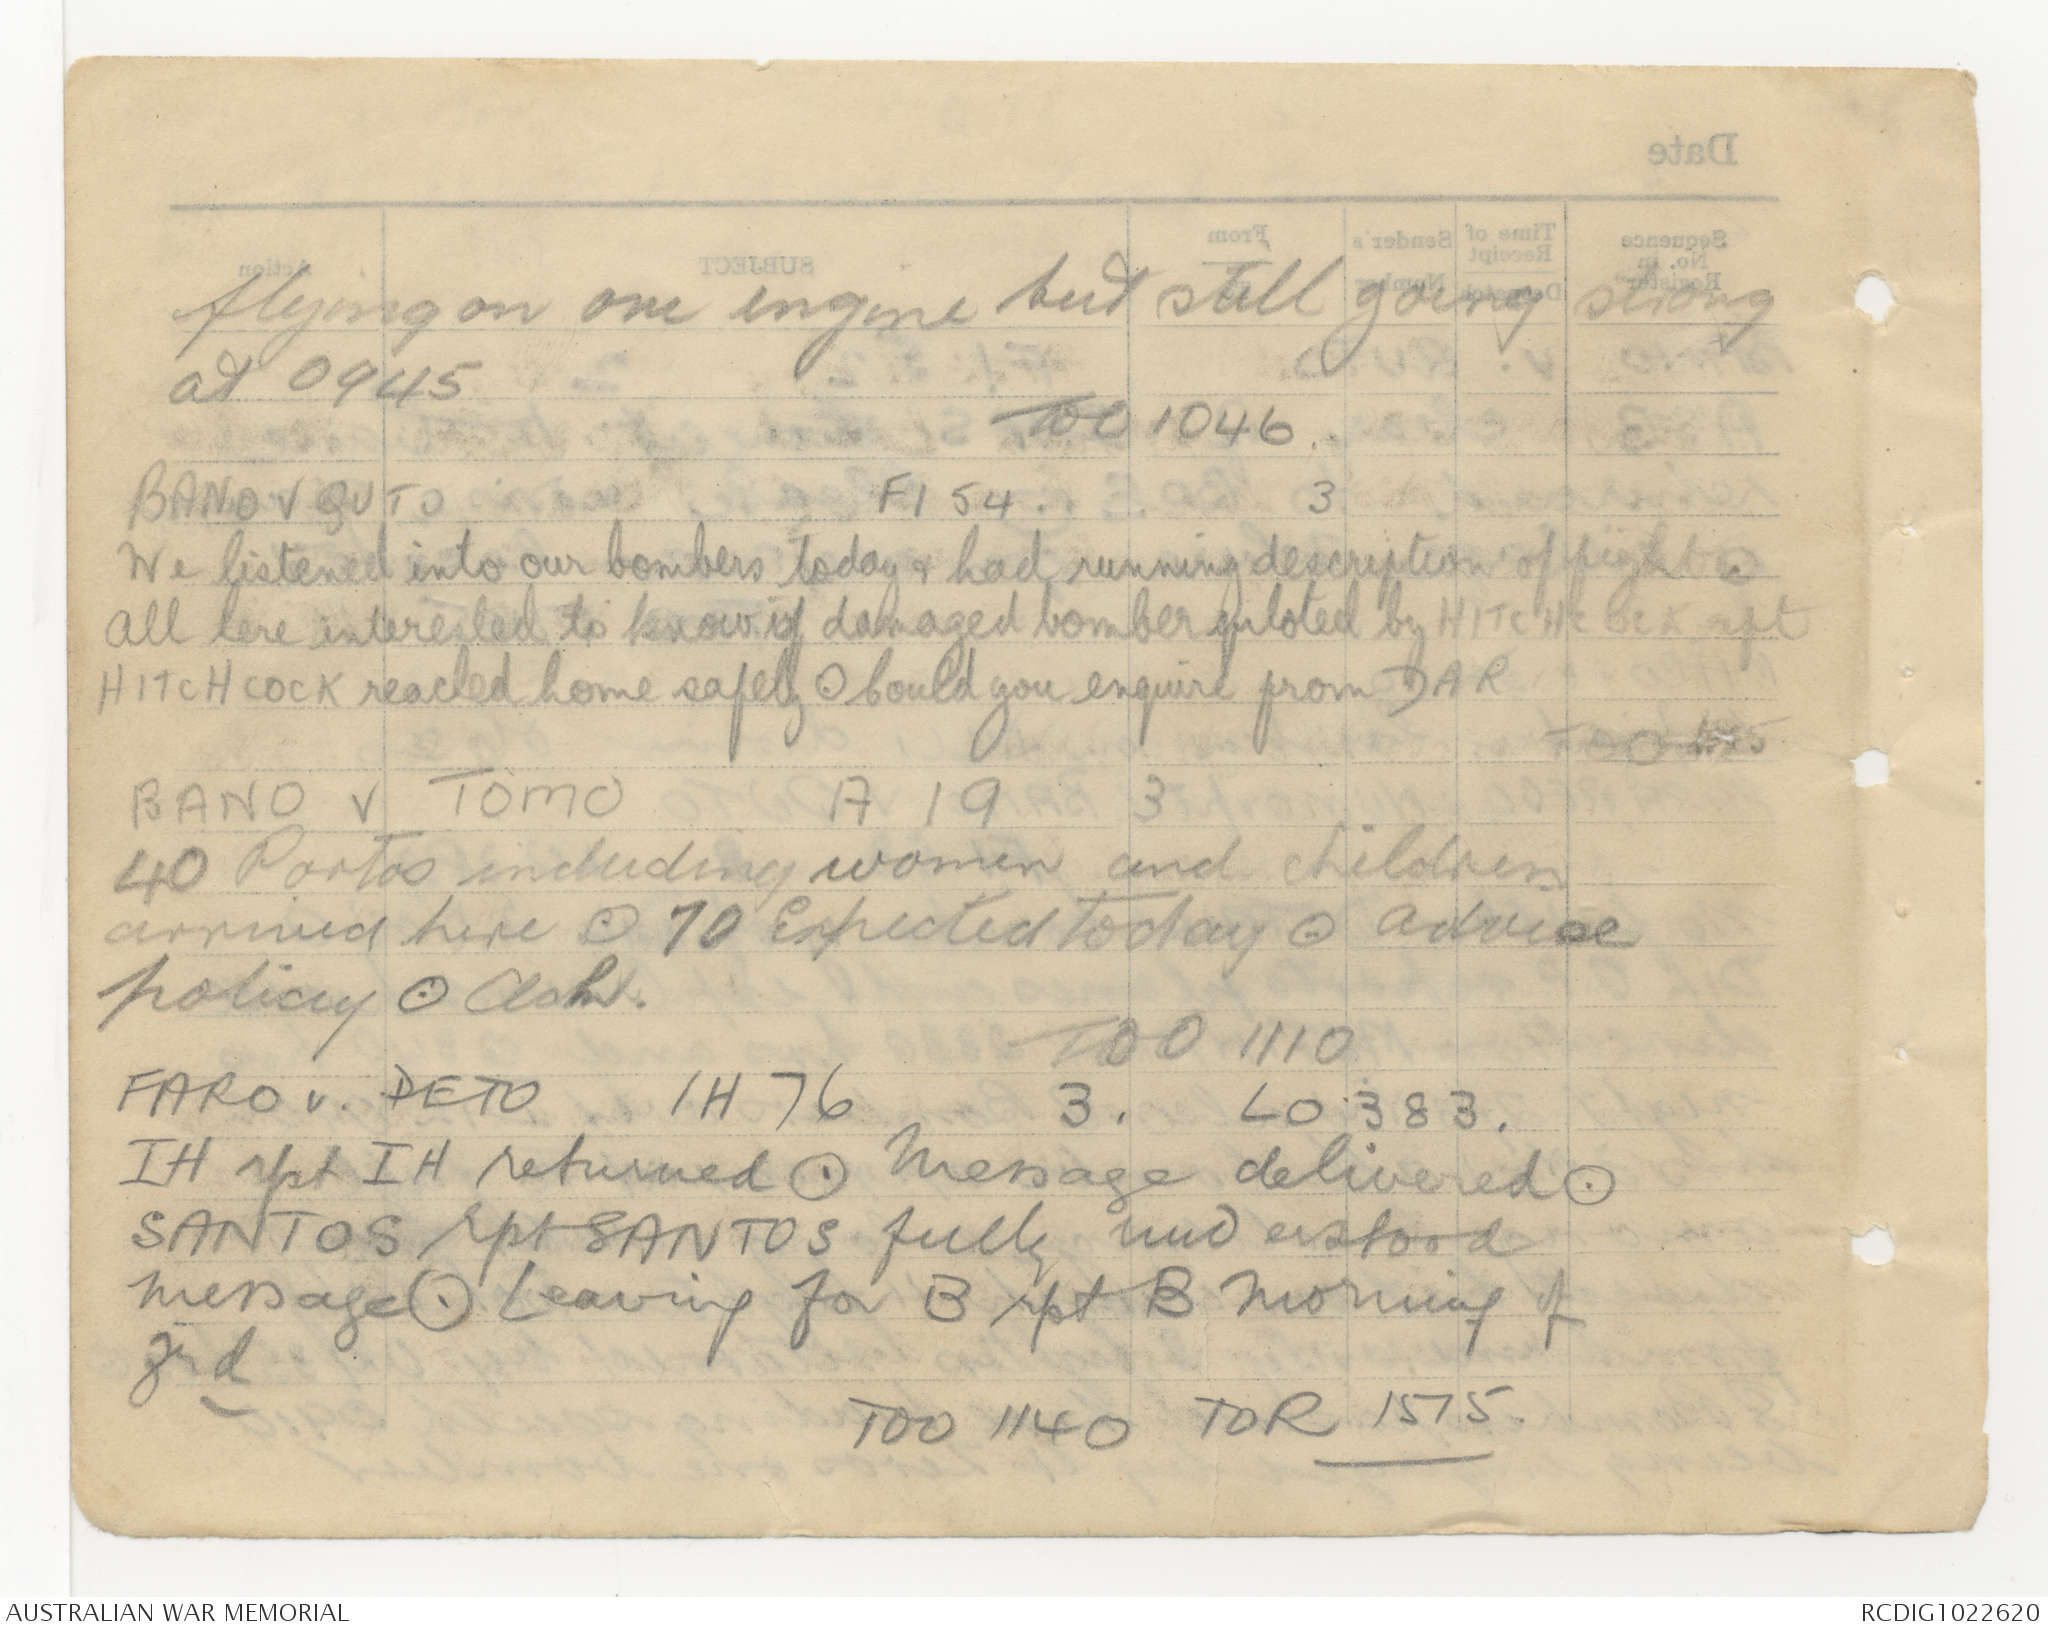 flying on one engine but still going strong
at 0945
TOO 1046.
BANO V QUTO F1 54. 3
We listened into our bombers today & had running description of fight ⊙
All here interested to know if damaged bomber piloted by HITCHCOCK rpt
HITCHCOCK reached home safely ⊙ Could you enquire from DAR
TOO
BANO V TOMO A 19 3
40 Portos including women and children
arrived here ⊙ 70 Expected today ⊙ Advise
policy ⊙ Ash.
TOO 1110
FARO v. DETO IH 76 3. LO 383.
IH rpt IH returned ⊙ Message delivered ⊙
SANTOS rpt SANTOS fully understood
message ⊙ Leaving for B rpt B morning of
3rd
TOO 1140 TOR 1515.
Date
Sequence No. in Register
Time of Receipt
Sender's Number
From
SUBJECT
Action
AUSTRALIAN WAR MEMORIAL
RCDIG1022620